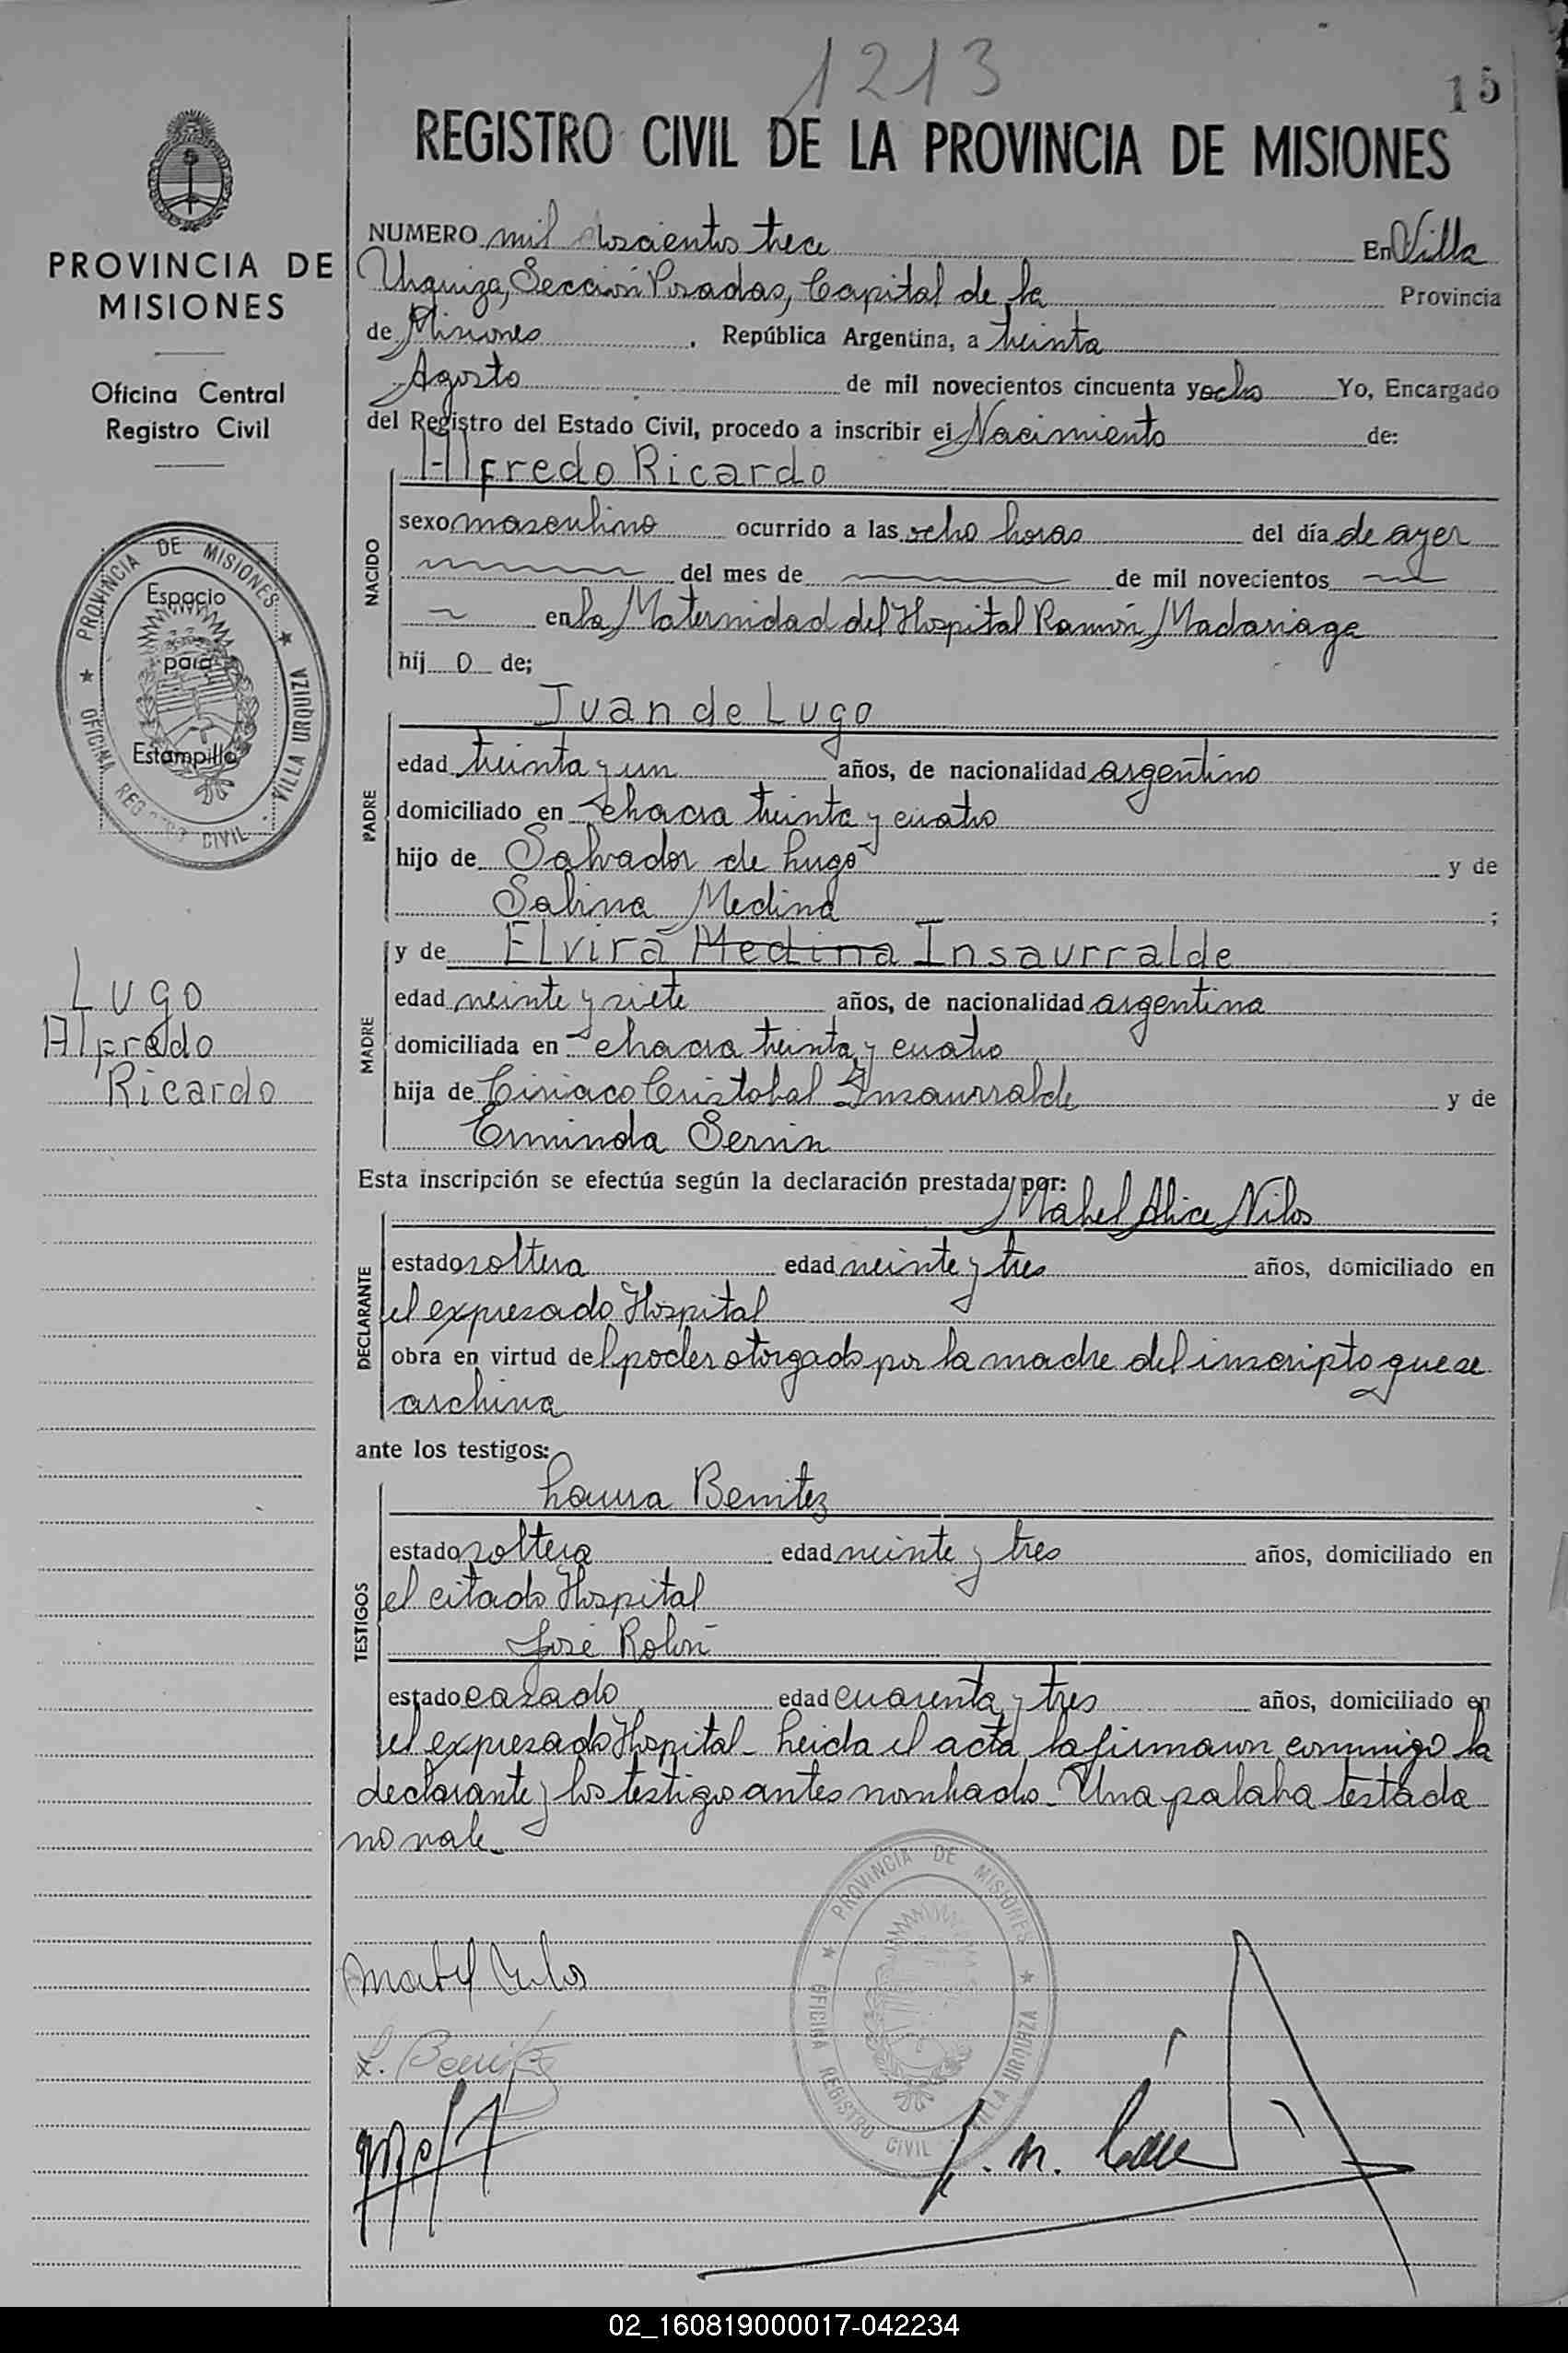 1213
15
REGISTRO CIVIL DE LA PROVINCIA DE MISIONES
PROVINCIA DE
MISIONES
Oficina Central
Registro Civil
PROVINCIA DE MISIONES
Espacio
para
Estampilla
OFICINA REGISTRO CIVIL - VILLA URQUIZA
Lugo
Alfredo
Ricardo
NUMERO mil doscientos trece En Villa
Urquiza, Sección Posadas, Capital de la Provincia
de Misiones, República Argentina, a treinta
Agosto de mil novecientos cincuenta y ocho Yo, Encargado
del Registro del Estado Civil, procedo a inscribir el Nacimiento de:
NACIDO
Alfredo Ricardo
sexo masculino ocurrido a las ocho horas del día de ayer
del mes de de mil novecientos
en la Maternidad del Hospital Ramón Madariaga
hij o de;
PADRE
Juan de Lugo
edad treinta y un años, de nacionalidad argentino
domiciliado en chacra treinta y cuatro
hijo de Salvador de Lugo y de
Sabina Medina ;
MADRE
y de Elvira Medina Insaurralde
edad veinte y siete años, de nacionalidad argentina
domiciliada en chacra treinta y cuatro
hija de Ciriaco Cristobal Insaurralde y de
Erminda Servin
Esta inscripción se efectúa según la declaración prestada por:
DECLARANTE
Mabel Alice Nilos
estado soltera edad veinte y tres años, domiciliado en
el expresado Hospital
obra en virtud del poder otorgado por la madre del inscripto que se
archiva
ante los testigos:
TESTIGOS
Laura Benitez
estado soltera edad veinte y tres años, domiciliado en
el citado Hospital
José Rolón
estado casado edad cuarenta y tres años, domiciliado en
el expresado Hospital - Leida el acta, la firmaron conmigo la
declarante y los testigos antes nombrados - Una palabra testada
no vale -
PROVINCIA DE MISIONES
OFICINA REGISTRO CIVIL VILLA URQUIZA
Mabel Nilos
L. Benitez
02_160819000017-042234